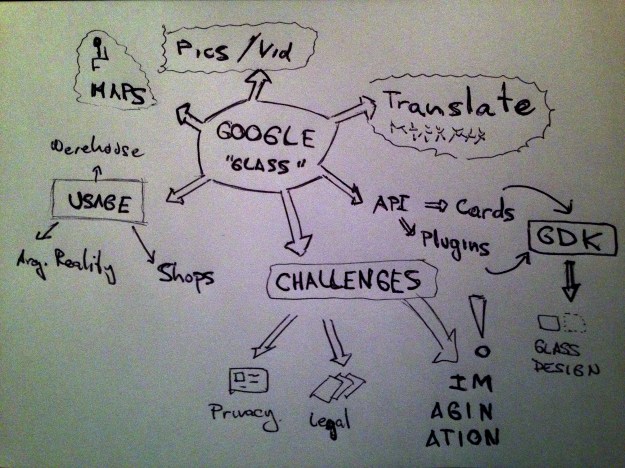 Pics / Vid
MAPS
Translate
GOOGLE
"GLASS"
Werehouse
USAGE
Aug. Reality
Shops
API ⇒ Cards
Plugins
GDK
GLASS
DESIGN
CHALLENGES
Privacy.
Legal
!
IM
AGIN
ATION